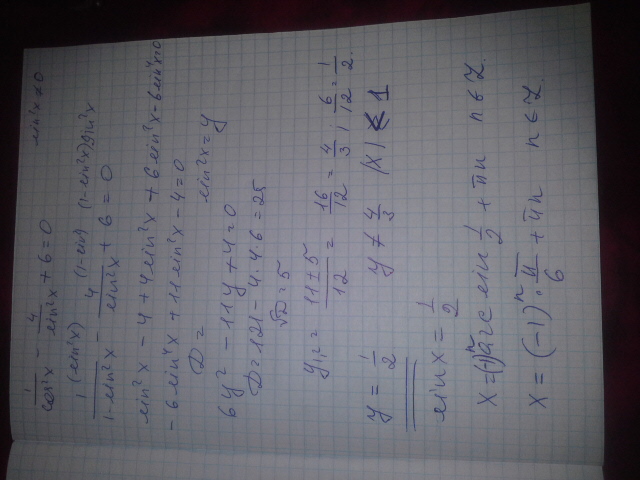 1/cos²x − 4/sin²x + 6 = 0 sin²x ≠ 0
1 (sin²x) (1-sin²) (1-sin²x)sin²x
1/1-sin²x − 4/sin²x + 6 = 0
sin²x − 4 + 4sin²x + 6sin²x − 6sin⁴x = 0
− 6sin⁴x + 11sin²x − 4 = 0
D = sin²x = y
6y² − 11y + 4 = 0
D = 121 − 4·4·6 = 25
√D = 5
y₁,₂ = 11±5/12 = 16/12 = 4/3 ; 6/12 = 1/2.
y = 1/2 y ≠ 4/3 |x| ≤ 1
sin x = 1/2
x = (-1)ⁿ arc sin 1/2 + πn n ∈ Z.
x = (-1)ⁿ · π/6 + πn n ∈ Z.